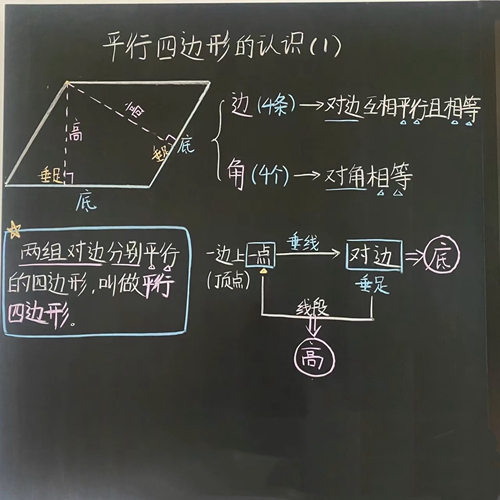 平行四边形的认识(1)
高
高
垂足
垂足
底
底
边(4条)→对边互相平行且相等
角(4个)→对角相等
两组对边分别平行
的四边形,叫做平行
四边形。
一边上一点
(顶点)
垂线
对边
⇒
底
垂足
线段
高